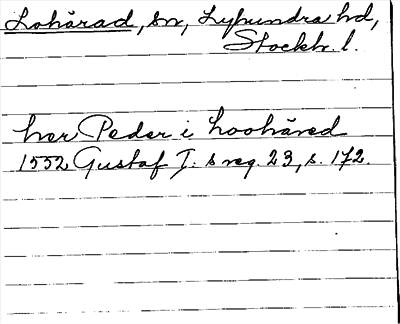 Lohärad, sn, Lyhundra hd,
Stockh. l.
her Peder i Loohäred
1552 Gustaf I: s reg. 23, s. 172.